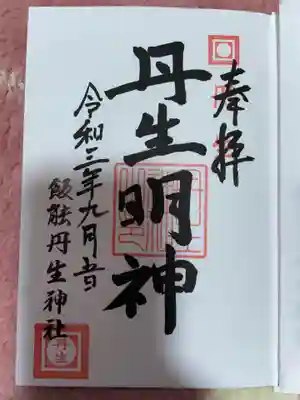 奉拝
丹生明神
令和三年九月吉日
飯能丹生神社
丹生